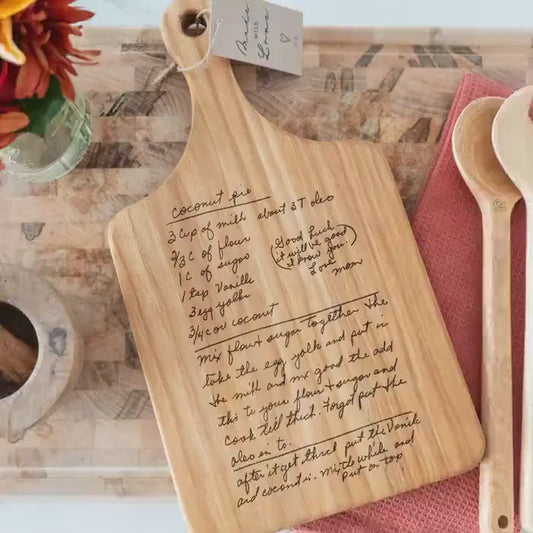 Made
with
Love
coconut pie
3 Cup of milk about 3 T oleo
2/3 C of flour
1 C of sugar
1 tsp Vanilla
3 egg yolks
3/4 c or coconut
(Good Luck
it will be good
I know you.)
Love
mom
Mix flour + sugar together the
take the egg yolk and put in
the milk and mx good the add
this to your flour + sugar and
cook tell thick. Forgot put the
oleo in to.
after it get thick put the Vanila
and coconut in. mix while and
put on top